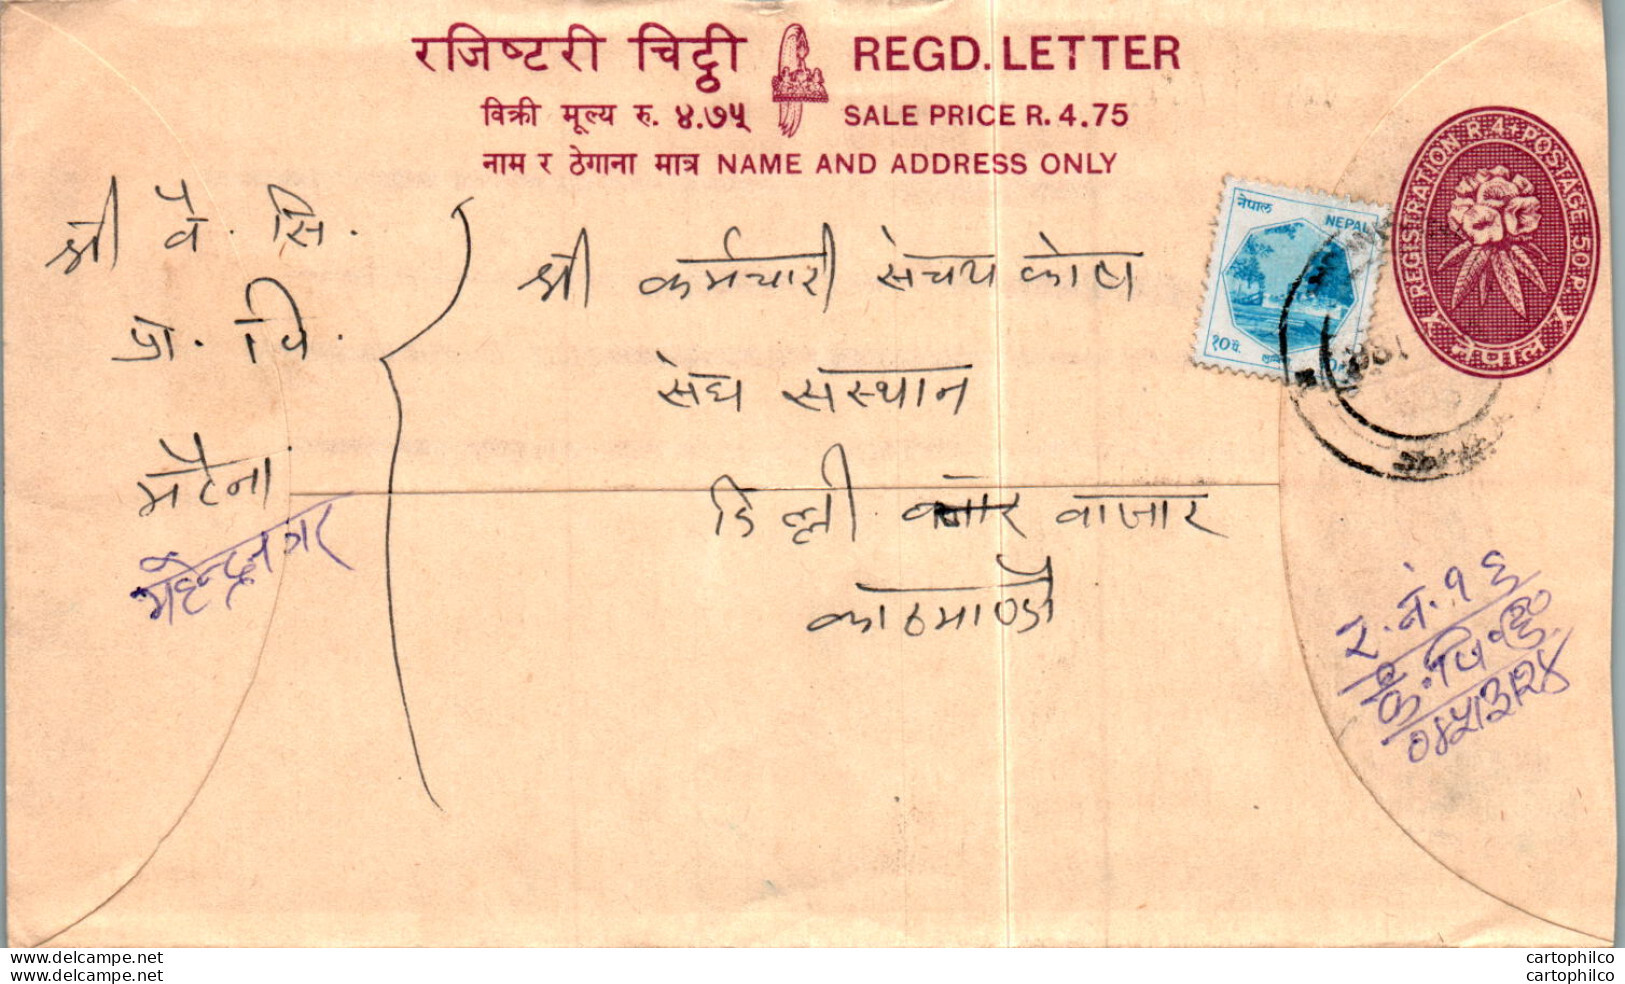 रजिष्टरी चिट्ठी REGD. LETTER
विक्री मूल्य रु. ४.७५ SALE PRICE R. 4.75
नाम र ठेगाना मात्र NAME AND ADDRESS ONLY
REGISTRATION R.4+POSTAGE 50 P.
नेपाल
नेपाल NEPAL
१० पै.
श्री वै. सि.
प्रा. वि.
भटैना
महेन्द्रनगर
श्री कर्मचारी संचय कोष
संघ संस्थान
डिल्ली बाजार
काठमाण्डौ
र. नं. १६
०४५।३।२४
delcampe.net
delcampe.net
cartophilco
cartophilco